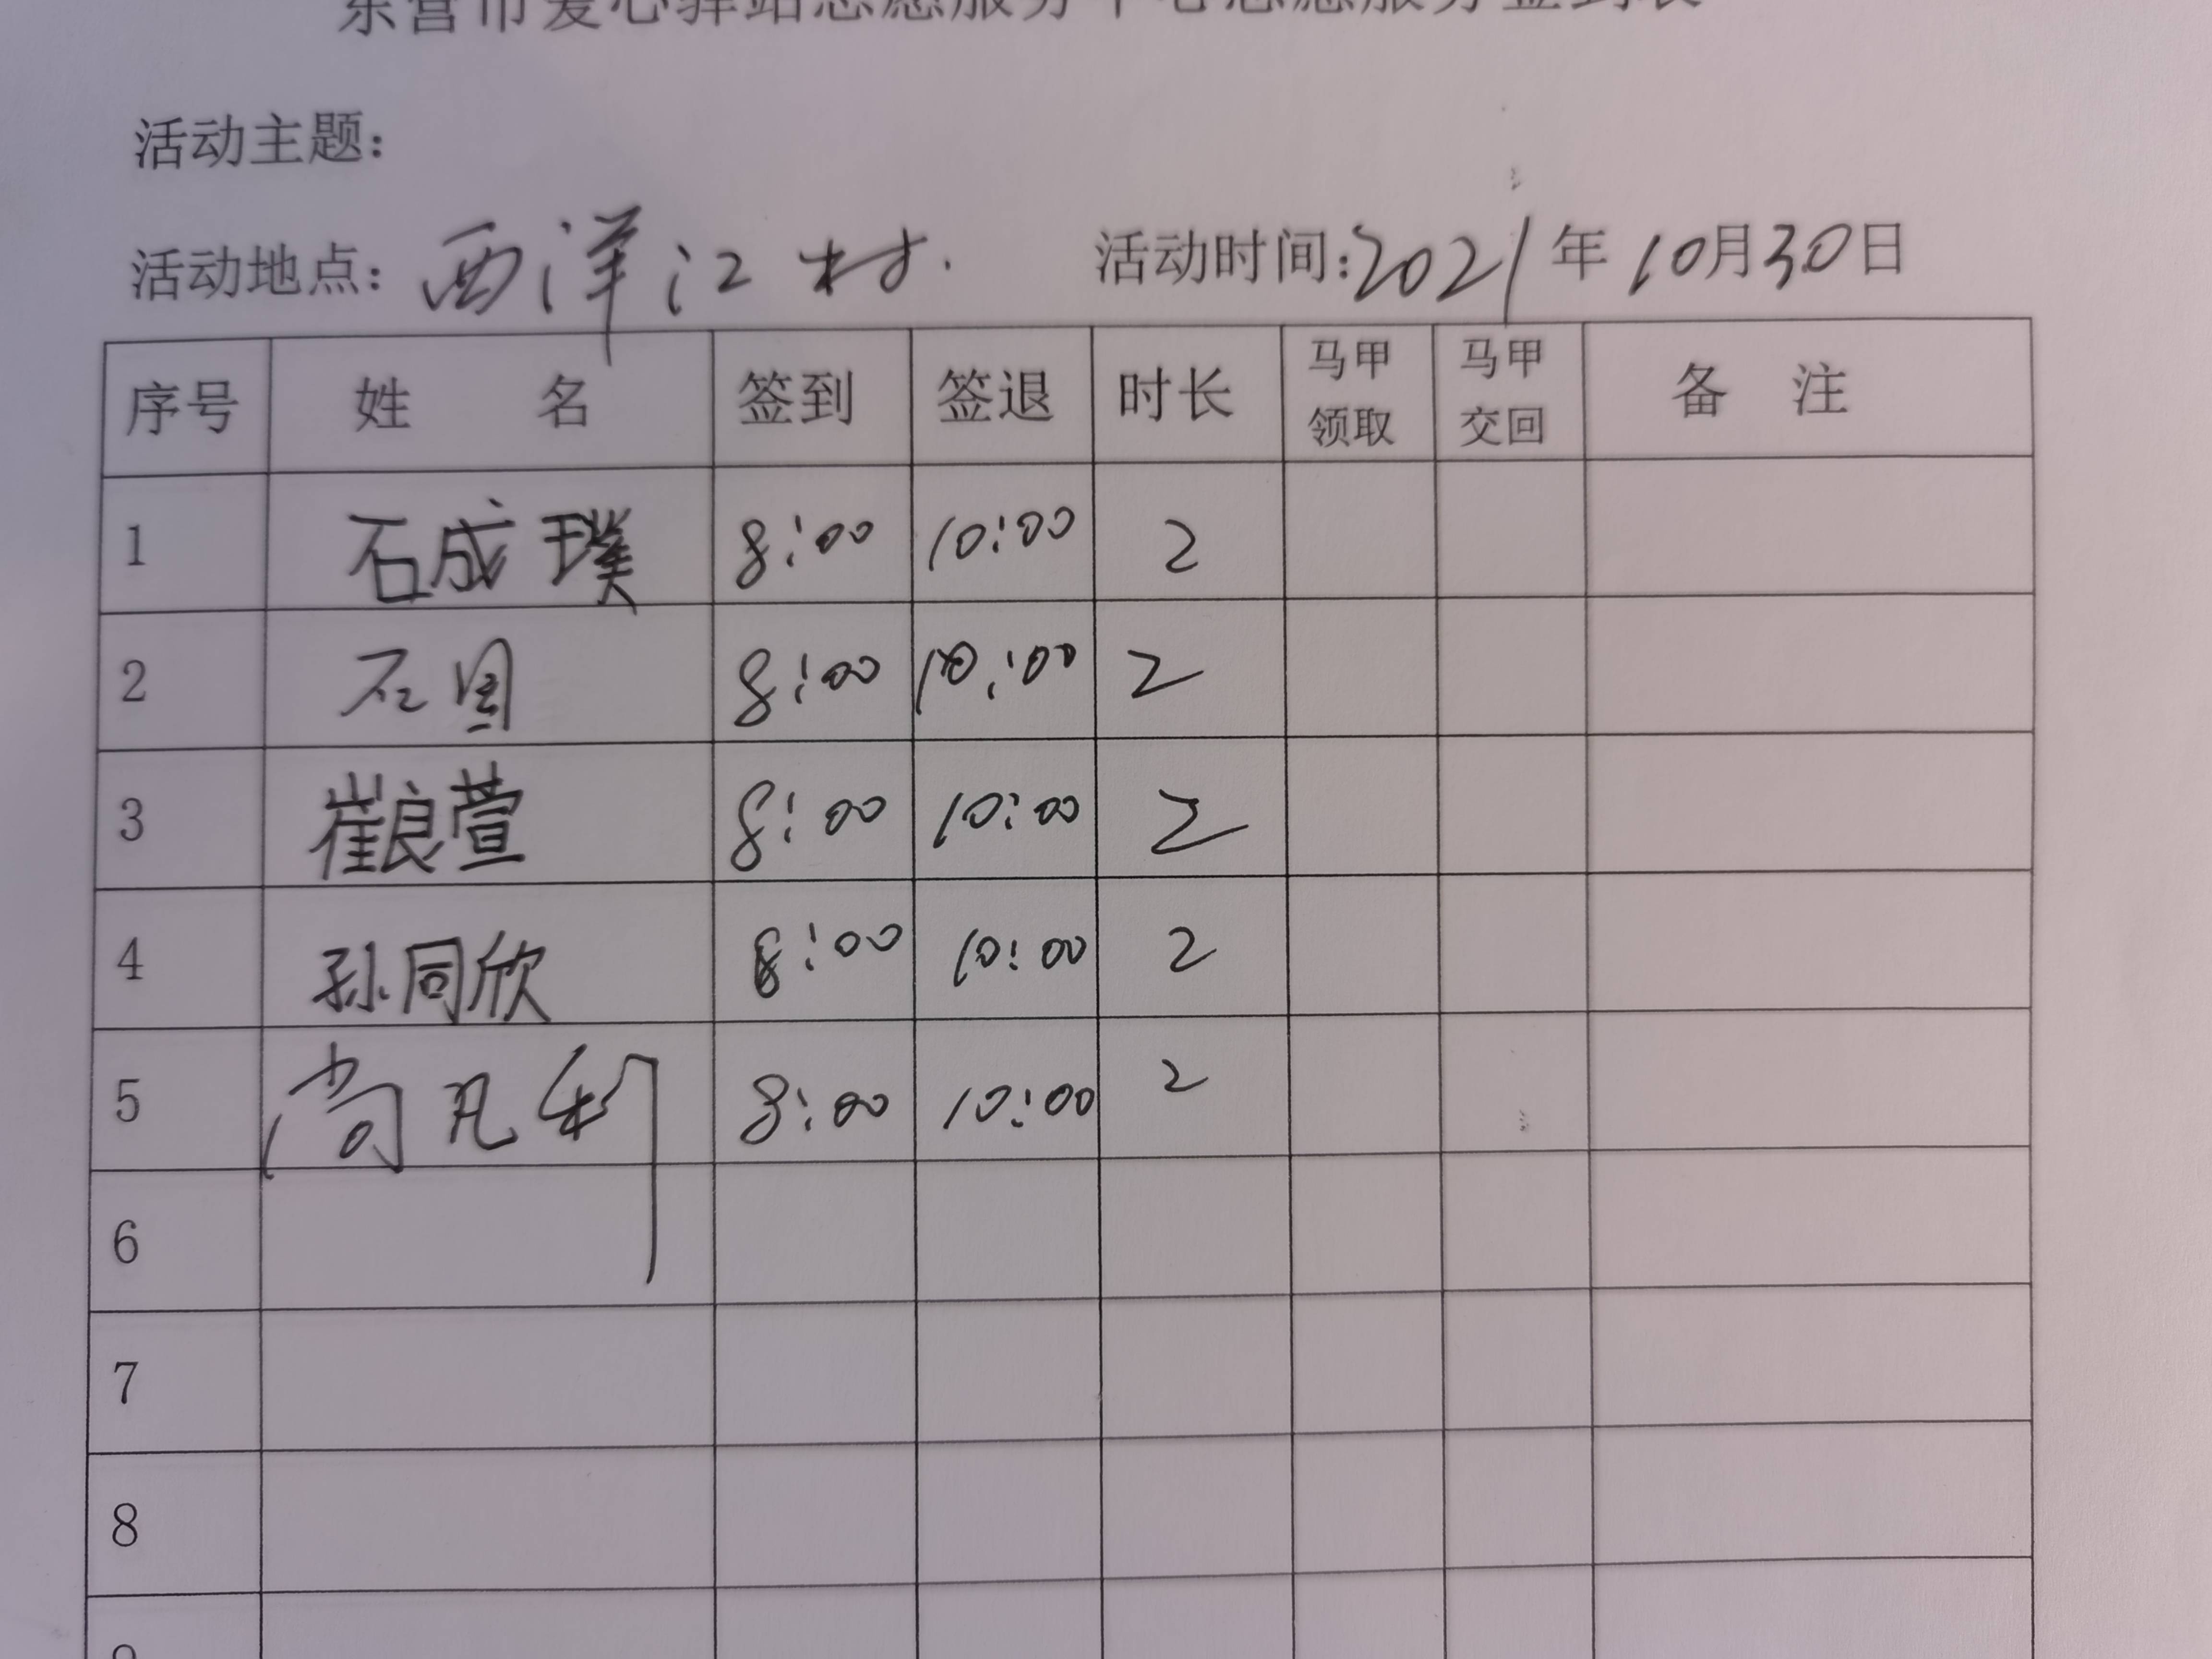 东营市爱心驿站志愿服务中心志愿服务签到表
活动主题：
活动地点：西洋江村. 活动时间：2021年10月30日
序号 姓 名 签到 签退 时长 马甲领取 马甲交回 备 注
1 石成璞 8:00 10:00 2
2 石国 8:00 10:00 2
3 崔良萱 8:00 10:00 2
4 孙同欣 8:00 10:00 2
5 尚凡利 8:00 10:00 2
6
7
8
9